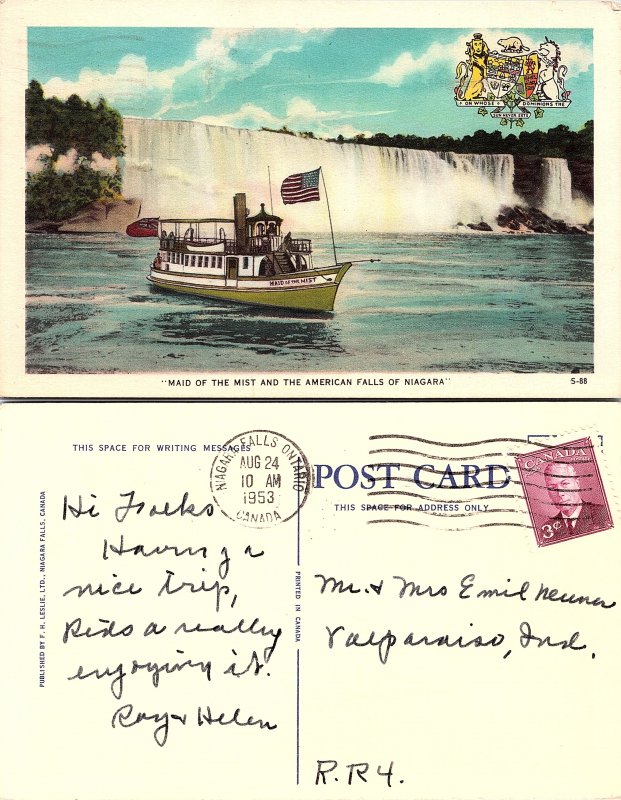 ON WHOSE DOMINIONS THE
SUN NEVER SETS
MAID OF THE MIST
"MAID OF THE MIST AND THE AMERICAN FALLS OF NIAGARA"
S-88
THIS SPACE FOR WRITING MESSAGES
NIAGARA FALLS ONTARIO
AUG 24
10 AM
1953
CANADA
POST CARD
THIS SPACE FOR ADDRESS ONLY
CANADA
3¢
PUBLISHED BY F. H. LESLIE, LTD., NIAGARA FALLS, CANADA
PRINTED IN CANADA
Hi Folks
Having a
nice trip,
Kids a really
enjoying it.
Ray & Helen
Mr. & Mrs Emil Neuner
Valparaiso, Ind.
R.R 4.